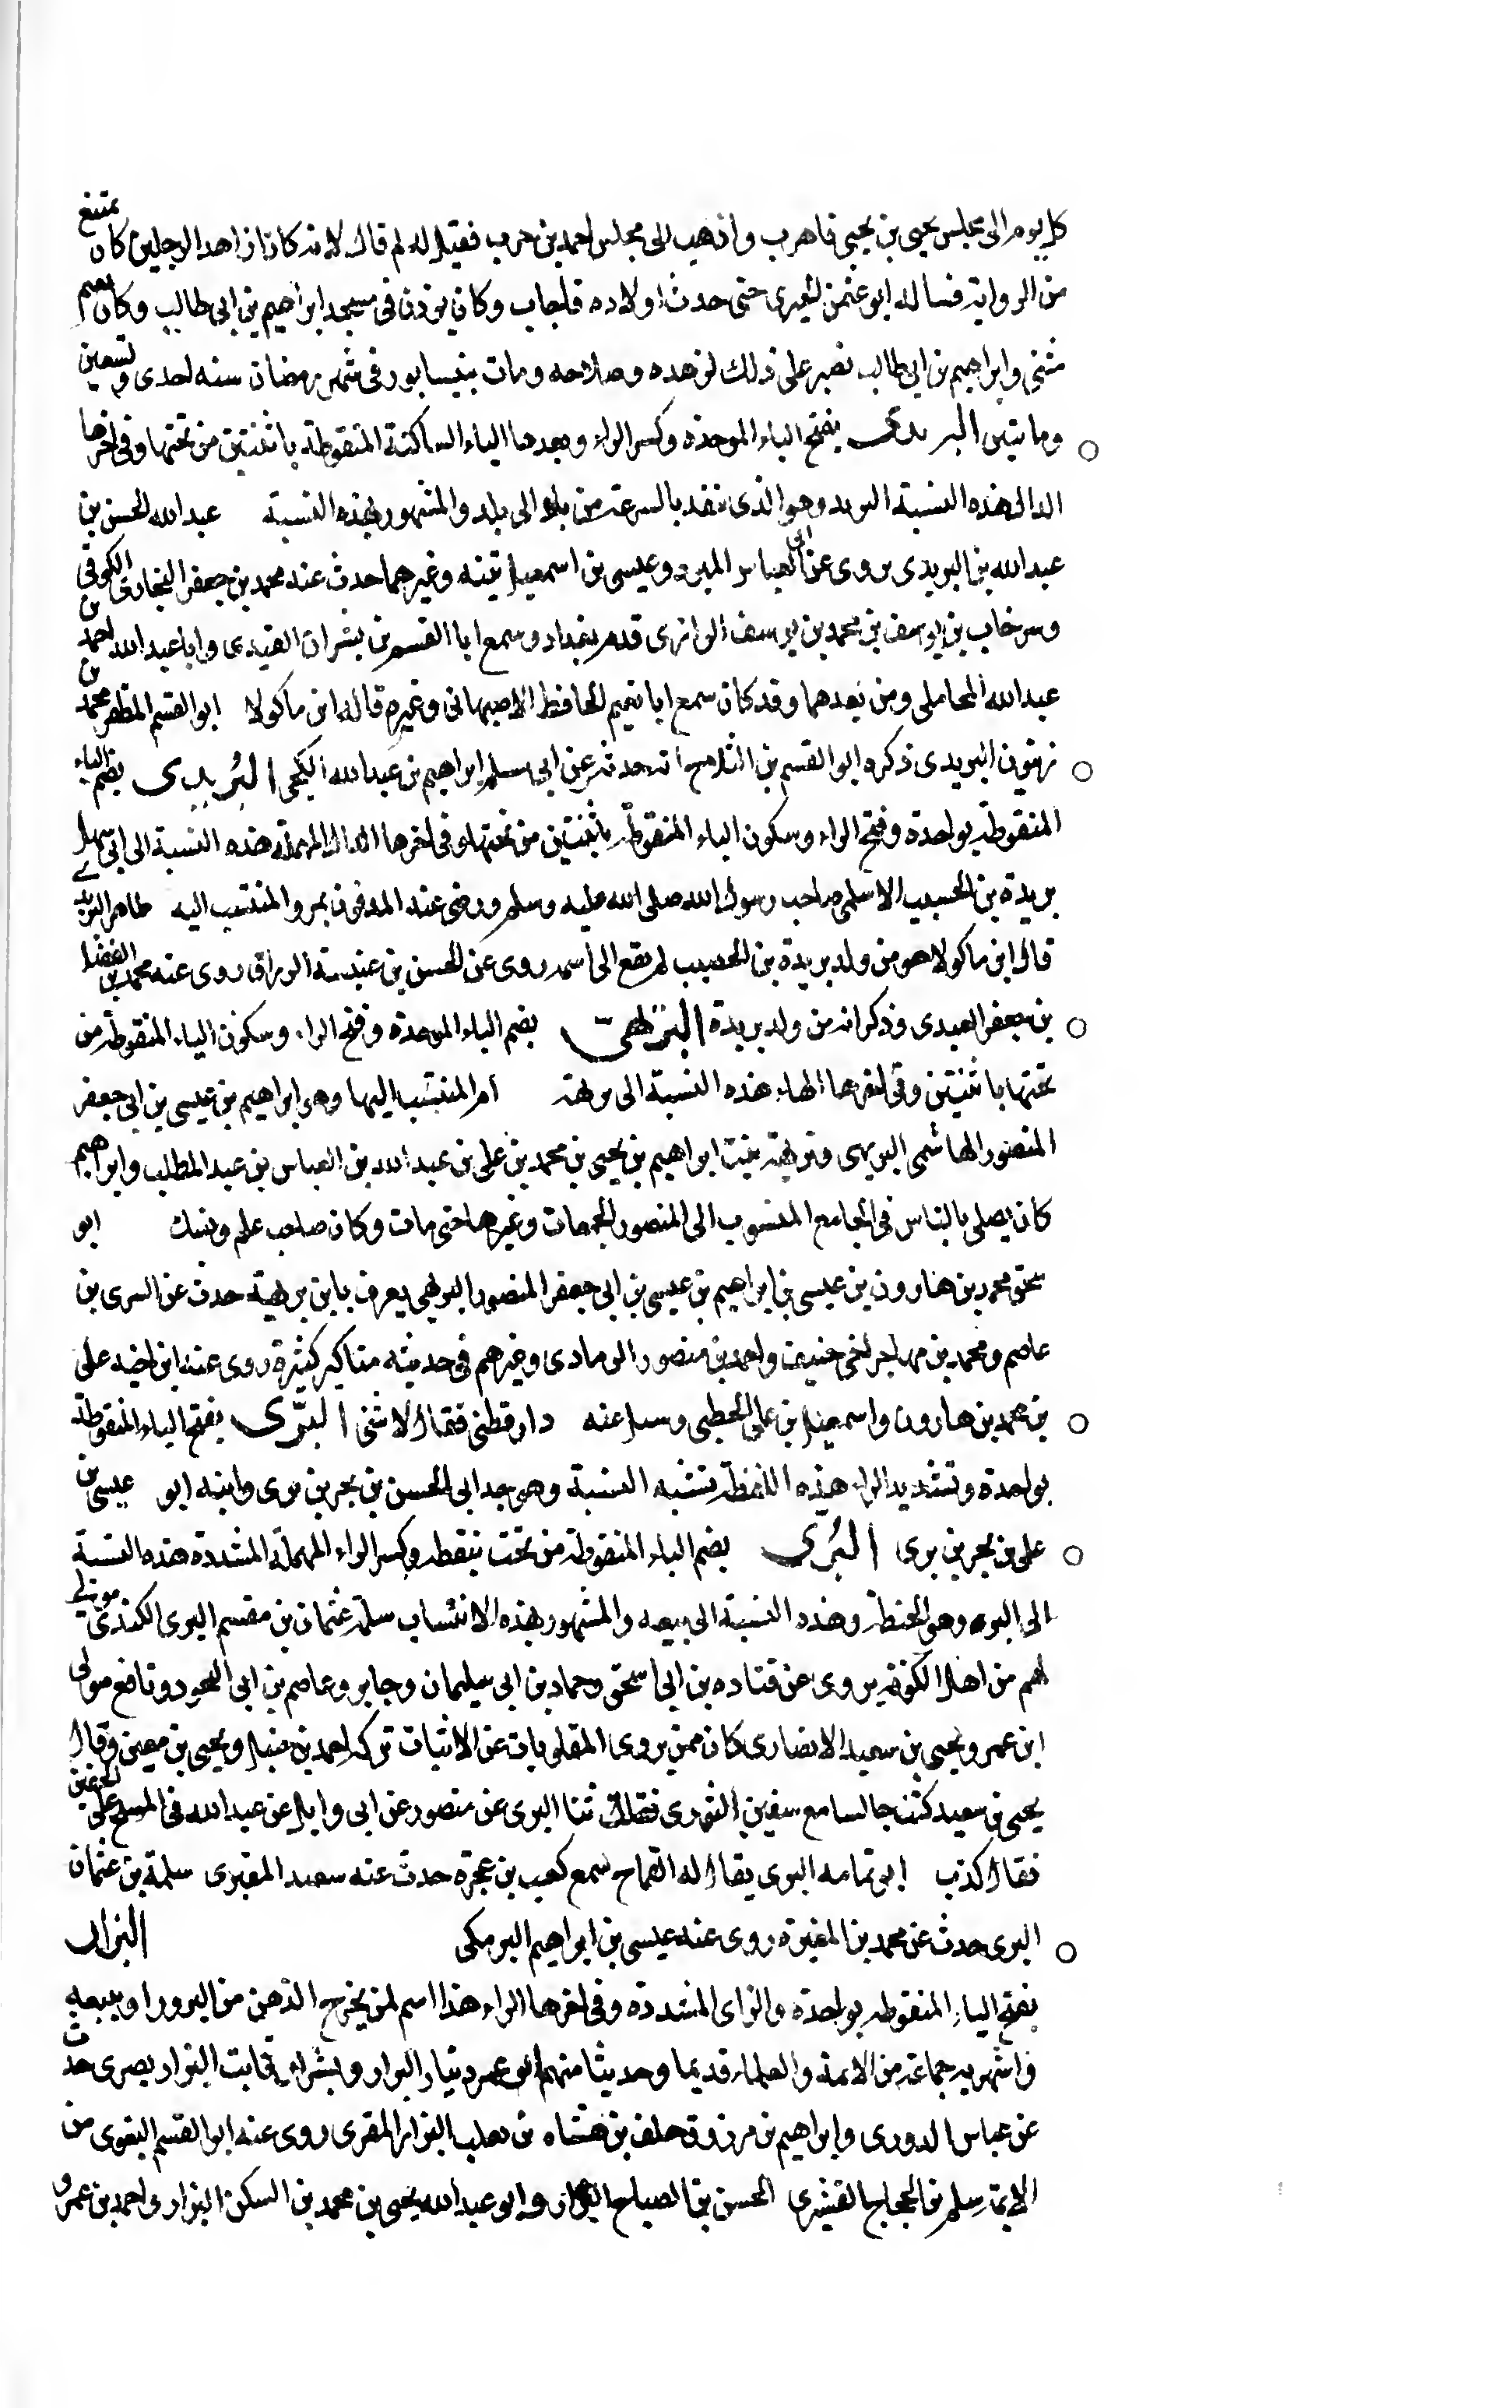 كل يوم الى مجلس يحيى بن يحيى فاهرب واذهب الى مجلس احمد بن حرب فقيل له لم قال لانه كان ازاهد الرجلين كان يمتنع
من الرواية فساله ابو عثمن الحيرى حتى حدث اولاده فاجاب وكان يوذن فى مسجد ابراهيم بن ابى طالب وكان يقيم
مثنى وابراهيم بن ابى طالب يصبر على ذلك لزهده وصلاحه ومات بنيسابور فى شهر رمضان سنه احدى وتسعين
ومايتين البريدى بفتح الباء الموحدة وكسر الراء وبعدها الياء الساكنة المنقوطة باثنتين من تحتها وفى اخرها
الدال هذه النسبة البريد وهو الذى ينفد بالسرعة من بلد الى بلد والمشهور بهذه النسبة عبد الله الحسن بن
عبد الله بن البريدى يروى عن ابى العباس المبرد وعيسى بن اسمعيل تينه وغيرهما حدث عنه محمد بن جعفر النجار الكوفى
وسرخاب بن يوسف بن محمد بن يوسف الرازى قدم بغداد وسمع ابا القسم بن بشران القيدى وابا عبد الله احمد بن
عبد الله المحاملى ومن بعدهما وقد كان سمع ابا نعيم الحافظ الاصبهانى وغيره قاله ابن ماكولا ابو القسم المظهر محمد بن
زيتون البريدى ذكره ابو القسم بن الثلاج انه حدثه عن ابى مسلم ابراهيم بن عبد الله الكجى البُريدى بضم الباء
المنقوطة بواحدة وفتح الراء وسكون الياء المنقوطة باثنتين من تحتها وفى اخرها الدال المهملة هذه النسبة الى ابى سهل
بريدة بن الحصيب الاسلمى صاحب رسول الله صلى الله عليه وسلم ورضى عنه المدفون بمرو المنتسب اليه طاهر البريدى
قال ابن ماكولا هو من ولد بريدة بن الحصيب لم يقع الى اسمه روى عن الحسن بن عنبسة الوراق روى عنه محمد بن الفضل
بن جعفر العبدى وذكر انه من ولد بريدة البريهى بضم الباء الموحدة وفتح الراء وسكون الياء المنقوطة من
تحتها باثنتين وفى اخرها الهاء هذه النسبة الى بريهة ام المنتسب اليها وهو ابراهيم بن عيسى بن ابى جعفر
المنصور الهاشمى البريهى وبريهة بنت ابراهيم بن يحيى بن محمد بن على بن عبد الله بن العباس بن عبد المطلب وابراهيم
كان يصلى بالناس فى الجامع المنسوب الى المنصور الجمعات وغيرها حتى مات وكان صاحب علم ونسك ابو
سحق محمد بن هارون بن عيسى بن ابراهيم بن عيسى بن ابى جعفر المنصور البريهى يعرف بابن بريهة حدث عن السرى بن
عاصم ومحمد بن مهاجر اخى حنيف واحمد بن منصور الرمادى وغيرهم فى حديثه مناكير كثيرة روى عنه ابن اخيه على
بن محمد بن هارون واسمعيل بن على الخطبى وسئل عنه دارقطنى فقال لا شى البَرّى بفتح الباء المنقوطة
بواحدة وتشديد الراء هذه اللفظة تشبه النسبة وهو جد ابى الحسن بن بحر بن برى وابنه ابو عيسى بن
على بن بحر بن برى البُرّى بضم الباء المنقوطة من تحت بنقطة وكسر الراء المهملة المشددة هذه النسبة
الى البره وهو الحنطة وهذه النسبة الى بيعه والمشهور بهذه الانتساب سلمة عثمان بن مقسم البرى الكندى مولى
لهم من اهل الكوفة يروى عن قتاده بن ابى اسحق وحماد بن ابى سليمان وجابر وعاصم بن ابى النجود ونافع مولى
ابن عمر ويحيى بن سعيد الانصارى كان ممن يروى المقلوبات عن الاثبات تركه احمد بن حنبل ويحيى بن معين وقال
يحيى بن سعيد كنت جالسا مع سفين الثورى فقلت ثنا البرى عن منصور عن ابى وايل عن عبد الله فى المسح على الخفين
فقال كذب ابو ثمامه البرى يقال له القماح سمع كعب بن عجرة حدث عنه سعيد المقبرى سلمة بن عثمان
البرى حدث عن محمد بن المغيرة روى عنه عيسى بن ابراهيم البرمكى البزار
بفتح الباء المنقوطه بواحدة والزاى المشددة وفى اخرها الراء هذا اسم لمن يخرج الدهن من البزور او يبيعه
واشتهر به جماعة من الائمة والعلماء قديما وحديثا منهم ابو عمر دينار البزار وبشر بن ثابت البزار بصرى حدث
عن عباس الدورى وابراهيم بن مرزوق خلف بن هشام بن ثعلب البزار المقرى روى عنه ابو القسم البغوى من
الائمة مسلم بن الحجاج القشيرى الحسن بن الصباح البزار وابو عبد الله يحيى بن محمد بن السكن البزار واحمد بن عمرو